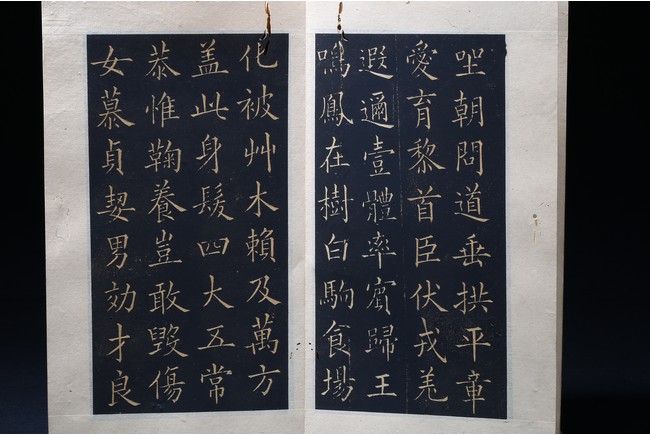 坐朝問道垂拱平章
愛育黎首臣伏戎羌
遐邇壹體率賓歸王
鳴鳳在樹白駒食場
化被艸木賴及萬方
盖此身髮四大五常
恭惟鞠養豈敢毀傷
女慕貞絜男効才良